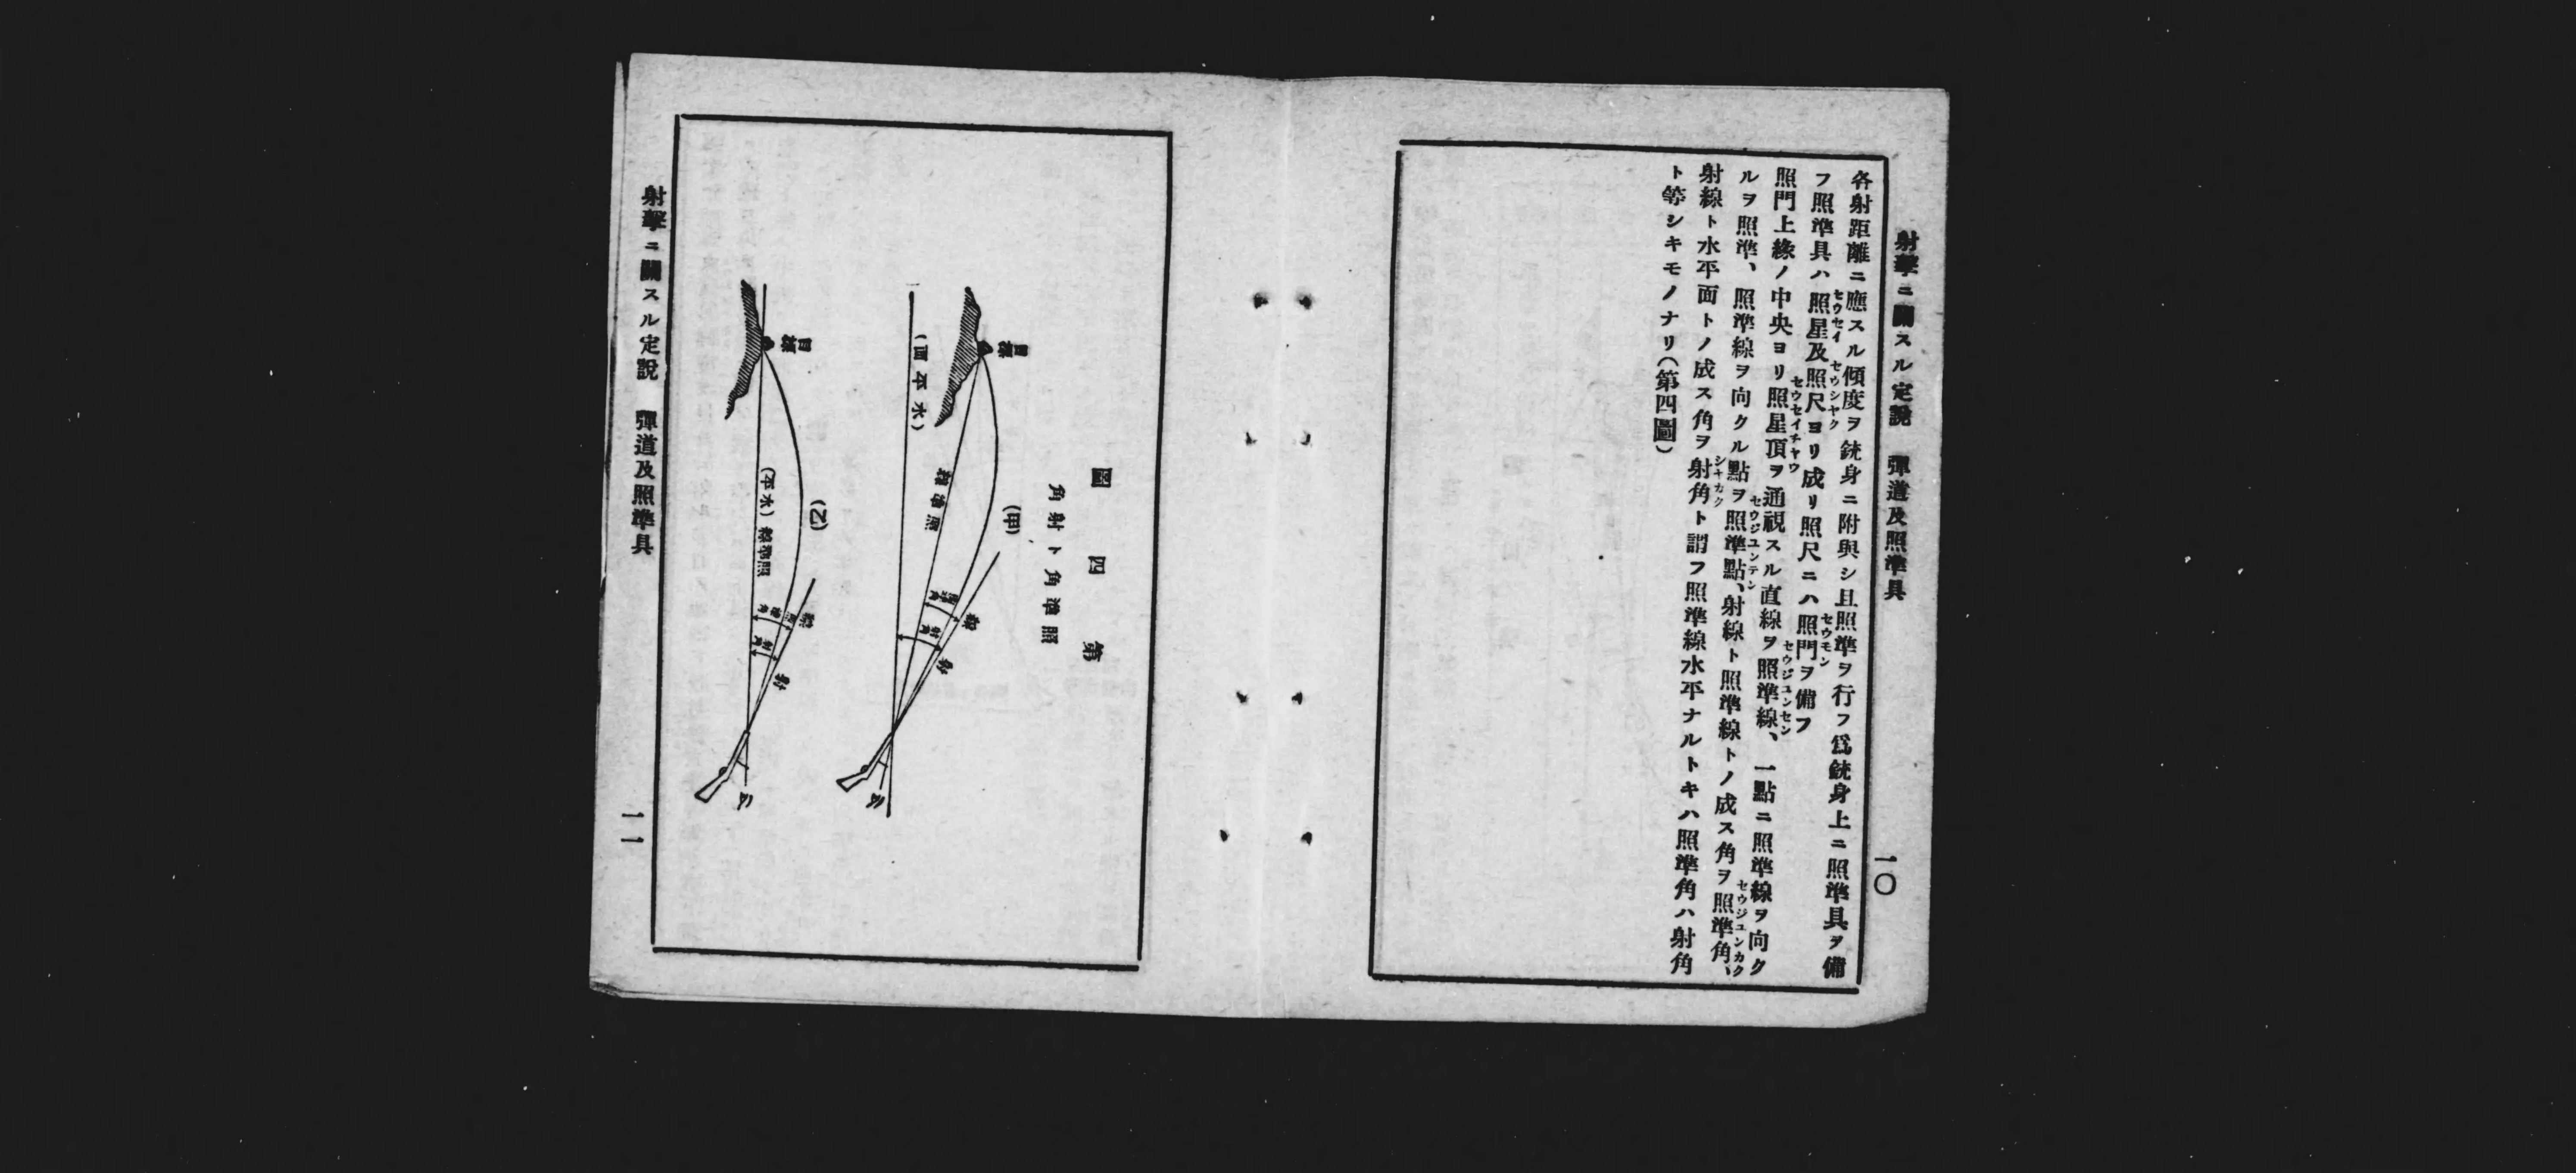 射擊ニ關スル定說 彈道及照準具
一〇
各射距離ニ應スル傾度ヲ銃身ニ附與シ且照準ヲ行フ爲銃身上ニ照準具ヲ備
フ照準具ハ照星及照尺ヨリ成リ照尺ニハ照門ヲ備フ
セウセイ セウシヤク セウモン
照門上緣ノ中央ヨリ照星頂ヲ通視スル直線ヲ照準線、一點ニ照準線ヲ向ク
セウセイチヤウ セウジユンセン
ルヲ照準、照準線ヲ向クル點ヲ照準點、射線ト照準線トノ成ス角ヲ照準角、
セウジユンテン セウジユンカク
射線ト水平面トノ成ス角ヲ射角ト謂フ照準線水平ナルトキハ照準角ハ射角
シキカク
ト等シキモノナリ(第四圖)
第四圖
照準角ト射角
(甲)
目標
照準線
(水平面)
射線
照準角
射角
(乙)
目標
照準線(水平)
射線
照準角
射角
射擊ニ關スル定說 彈道及照準具
一一